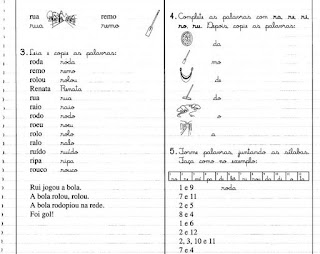 rua remo
rua remo
3. Leia e copie as palavras:
roda roda
remo remo
rolou rolou
Renata Renata
rua rua
raio raio
rodo rodo
roeu roeu
rolo rolo
ralo ralo
ruído ruído
ripa ripa
rouco rouco
Rui jogou a bola.
A bola rolou, rolou.
A bola rodopiou na rede.
Foi gol!
4. Complete as palavras com ra, re, ri,
ro, ru. Depois copie as palavras:
da
mo
de
do
o
a
5. Forme palavras, juntando as sílabas.
Faça como no exemplo:
1 e 9 roda
7 e 11
2 e 5
8 e 4
1 e 6
2 e 12
2, 3, 10 e 11
7 e 4